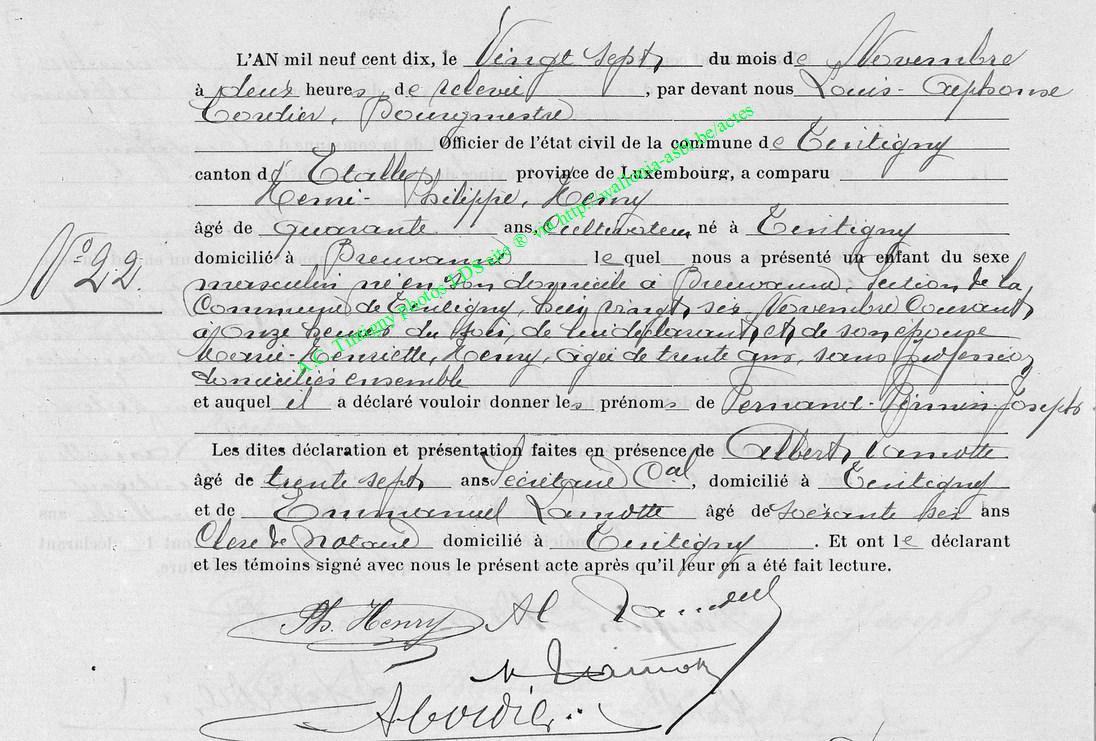 L'AN mil neuf cent dix, le Vingt sept, du mois de Novembre
à deux heures, de relevée, par devant nous Louis-Alphonse
Cordier, Bourgmestre
Officier de l'état civil de la commune de Tintigny
canton d'Etalle province de Luxembourg, a comparu
Henri-Philippe, Henry
âgé de quarante ans, Cultivateur, né à Tintigny
domicilié à Breuvanne lequel nous a présenté un enfant du sexe
N° 22.
masculin né en son domicile à Breuvanne, Section de la
Commune de Tintigny, hier vingt six Novembre Courant,
à onze heures du soir, de lui déclarant, et de son épouse
Marie-Henriette, Henry, âgée de trente ans, sans profession,
domiciliés ensemble
et auquel il a déclaré vouloir donner les prénoms de Fernand-Firmin-Joseph
Les dites déclaration et présentation faites en présence de Albert, Lamotte
âgé de trente sept, ans Secrétaire Cal, domicilié à Tintigny
et de Emmanuel Lamotte âgé de soixante six ans
Clerc de Notaire domicilié à Tintigny. Et ont le déclarant
et les témoins signé avec nous le présent acte après qu'il leur en a été fait lecture.
Ph. Henry Al Lamotte
Lamotte
A Cordier
A.C. Tintigny photos LDS site ® via http://wallonia-asbl.be/actes